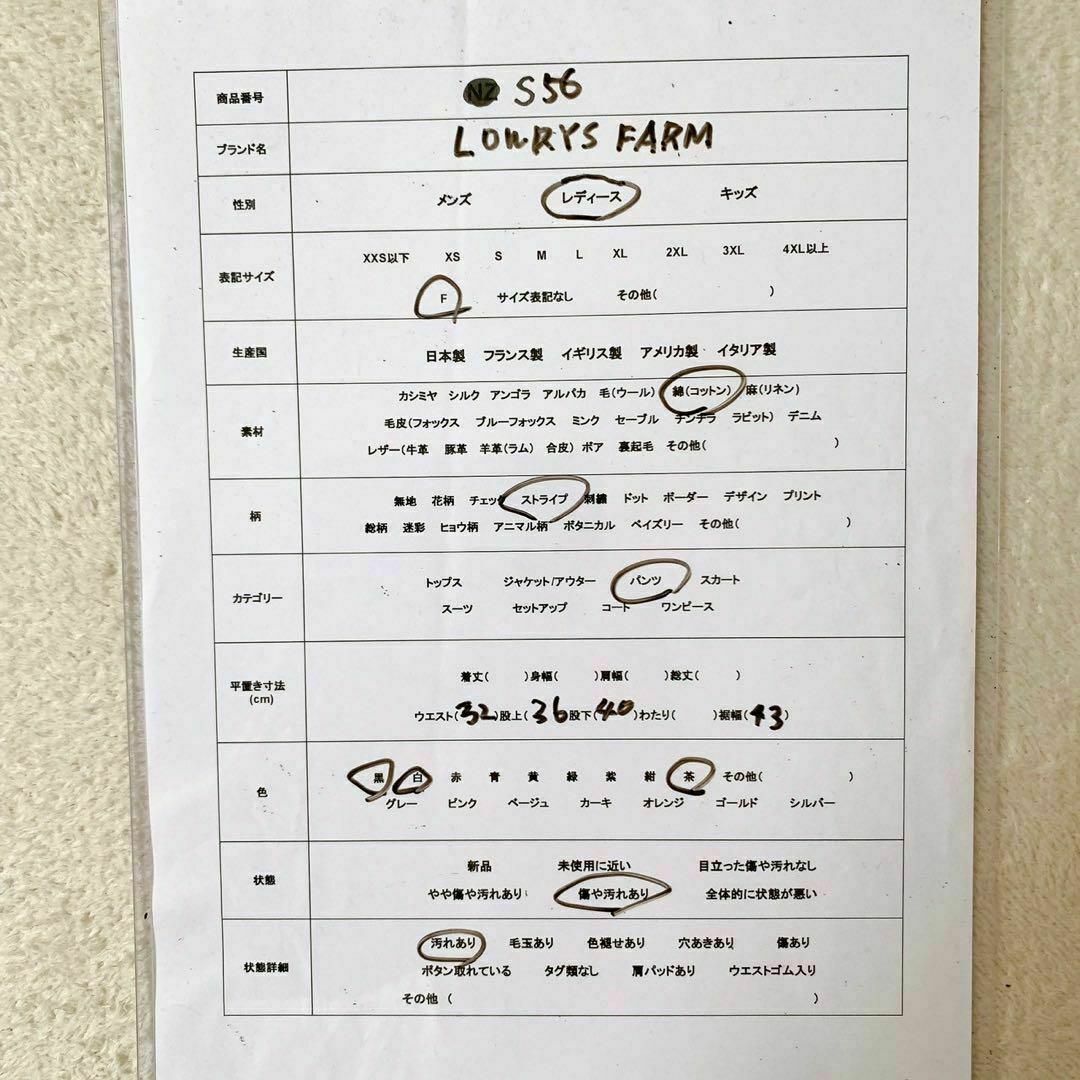 商品番号 NZ S56
ブランド名 LOWRYS FARM
性別 メンズ レディース キッズ
表記サイズ
XXS以下 XS S M L XL 2XL 3XL 4XL以上
F サイズ表記なし その他( )
生産国 日本製 フランス製 イギリス製 アメリカ製 イタリア製
素材
カシミヤ シルク アンゴラ アルパカ 毛(ウール) 綿(コットン) 麻(リネン)
毛皮(フォックス ブルーフォックス ミンク セーブル チンチラ ラビット) デニム
レザー(牛革 豚革 羊革(ラム) 合皮) ボア 裏起毛 その他( )
柄
無地 花柄 チェック ストライプ 刺繍 ドット ボーダー デザイン プリント
総柄 迷彩 ヒョウ柄 アニマル柄 ボタニカル ペイズリー その他( )
カテゴリー
トップス ジャケット/アウター パンツ スカート
スーツ セットアップ コート ワンピース
平置き寸法
(cm)
着丈( )身幅( )肩幅( )総丈( )
ウエスト(32)股上(36股下(40)わたり( )裾幅(43)
色
黒 白 赤 青 黄 緑 紫 紺 茶 その他( )
グレー ピンク ベージュ カーキ オレンジ ゴールド シルバー
状態
新品 未使用に近い 目立った傷や汚れなし
やや傷や汚れあり 傷や汚れあり 全体的に状態が悪い
状態詳細
汚れあり 毛玉あり 色褪せあり 穴あきあり 傷あり
ボタン取れている タグ類なし 肩パッドあり ウエストゴム入り
その他 ( )